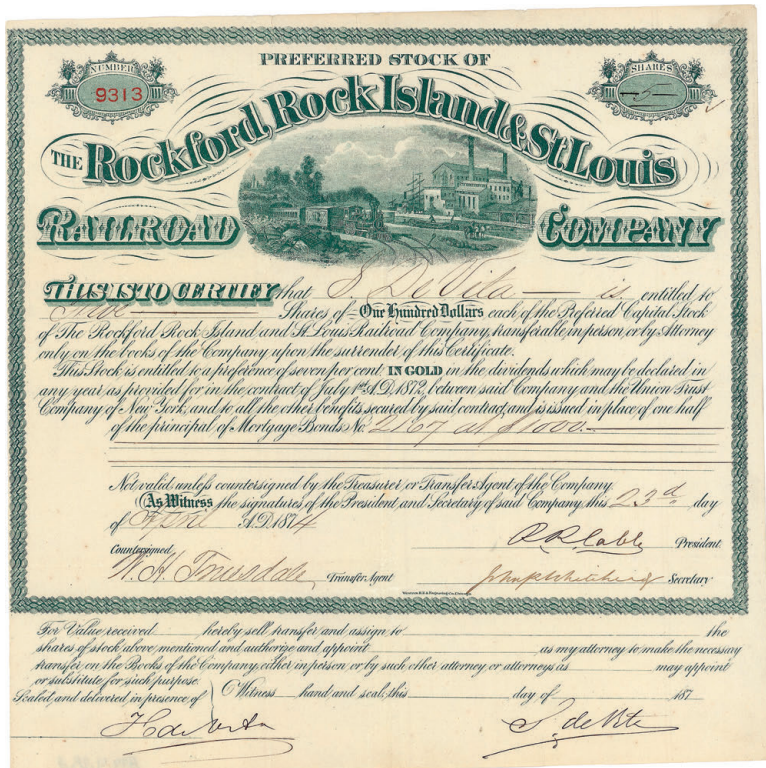 PREFERRED STOCK OF
NUMBER
9313
SHARES
5
THE Rockford, Rock Island & St Louis
RAILROAD COMPANY
THIS IS TO CERTIFY that S De Vila is entitled to
Five Shares of One Hundred Dollars each of the Preferred Capital Stock
of The Rockford Rock Island and St Louis Railroad Company, transferable in person, or by Attorney
only on the books of the Company upon the surrender of this Certificate.
This Stock is entitled to a preference of seven per cent IN GOLD in the dividends which may be declared in
any year as provided for in the contract of July 1st A.D. 1872, between said Company and the Union Trust
Company of New York, and to all the other benefits secured by said contract, and is issued in place of one half
of the principal of Mortgage Bonds No 2167 at $1000.-
Not valid unless countersigned by the Treasurer or Transfer Agent of the Company.
As Witness the signatures of the President and Secretary of said Company this 23d day
of April A.D. 1874
R R Cable President
Countersigned
W. H. Truesdale, Transfer Agent
Secretary
For Value received hereby sell transfer and assign to the
shares of stock above mentioned and authorize and appoint as my attorney to make the necessary
transfer on the Books of the Company, either in person or by such other attorney or attorneys as may appoint
or substitute for such purpose.
Witness hand and seal, this day of 187
Sealed and delivered in presence of